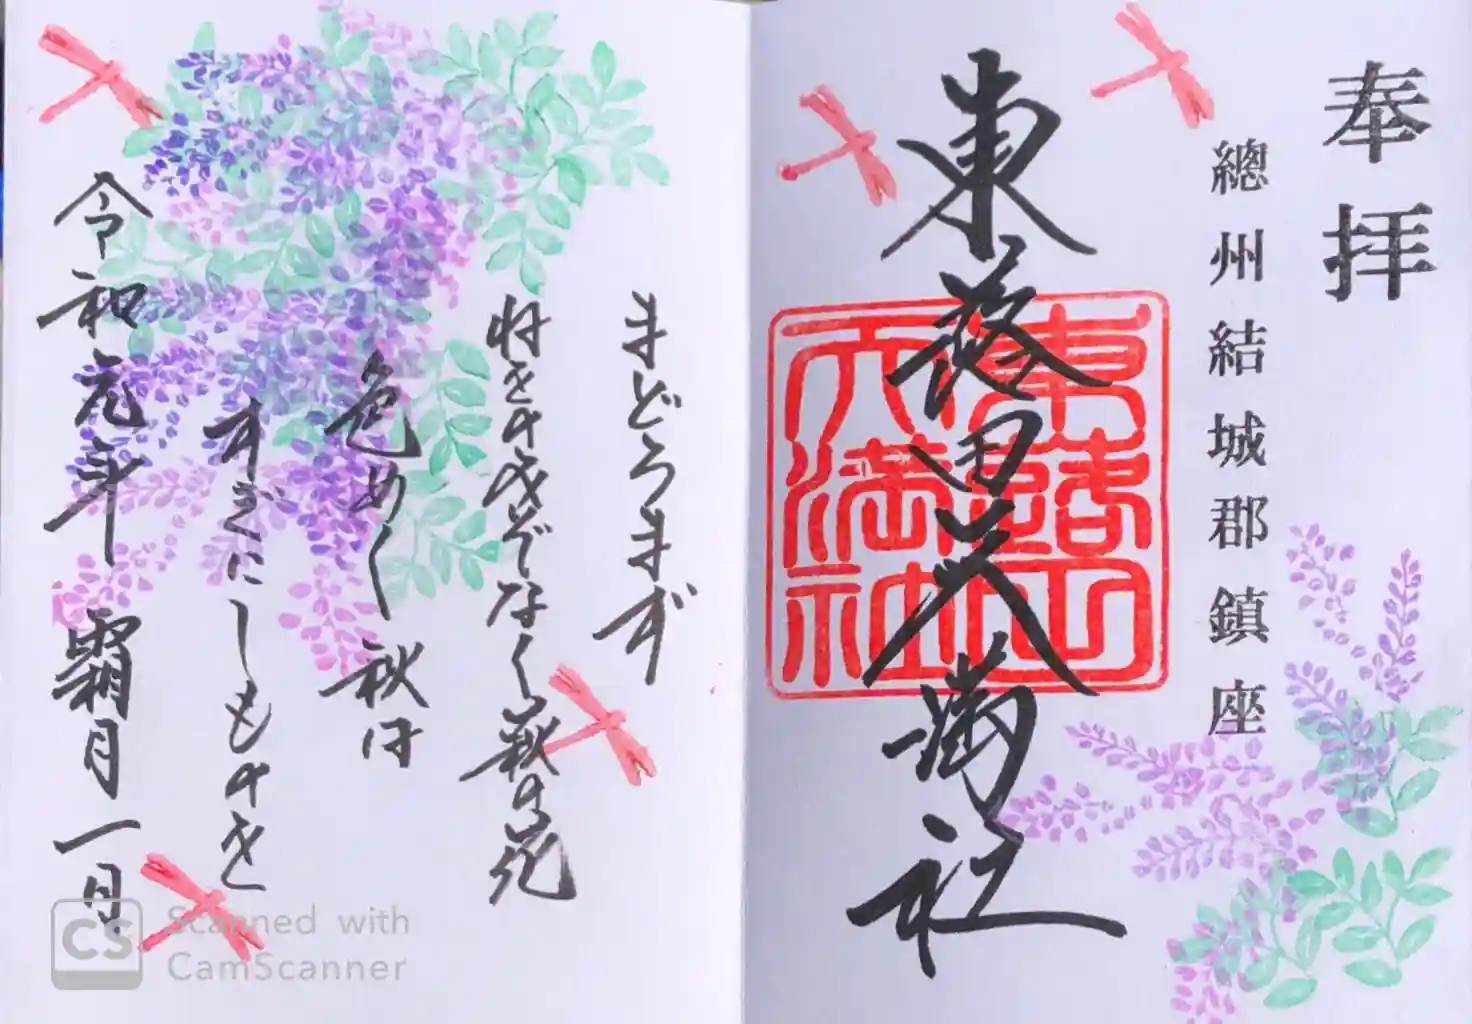 奉拝
總州結城郡鎮座
東蕗田天満社
まどろまず
ねをのみぞなく萩の花
色めく秋は
すぎにしものを
令和元年 霜月一日
CS Scanned with
CamScanner